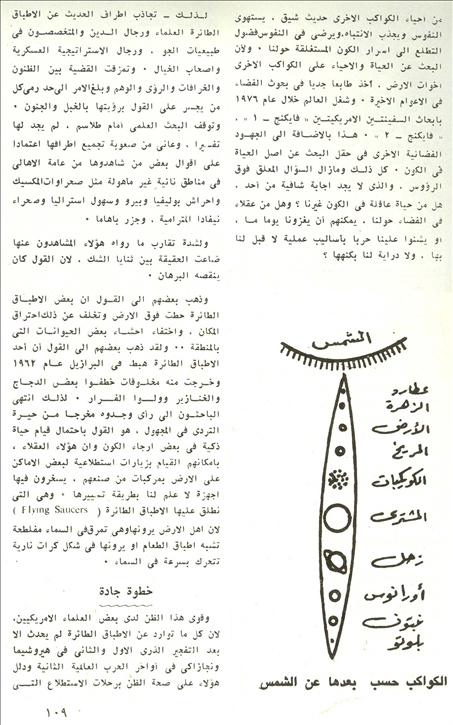 من احياء الكواكب الاخرى حديث شيق ، يستهوى
النفوس ويجذب الانتباه،ويرضى فى النفوس فضول
التطلع الى اسرار الكون المستغلقة حولنا ٠ ولان
البحث عن الحياة والاحياء على الكواكب الاخرى
اخوات الارض ، أخذ طابعا جديا فى بحوث الفضاء
فى الاعوام الاخيرة ٠ وشغل العالم خلال عام ١٩٧٦
بابحاث السفينتين الامريكيتين " فايكنج ــ ١ " ،
" فايكنج ــ ٢ " ٠ هذا بالاضافة الى الجهود
الفضائية الاخرى فى حقل البحث عن اصل الحياة
فى الكون ٠ كل ذلك ومازال السؤال المعلق فوق
الرؤوس ، والذى لا يجد اجابة شافية من أحد ،
هل من حياة عاقلة فى الكون غيرنا ؟ وهل من عقلاء
فى الفضاء حولنا ، يمكنهم أن يغزونا يوما مــا ،
او يشنوا علينا حربا بأساليب عملية لا قبل لنا
بها ، ولا دراية لنا بكنهها ؟
الشمس
عطارد
الزهرة
الأرض
المريخ
الكويكبات
المشترى
زحل
أورانوس
نبتون
بلوتو
الكواكب حسب بعدها عن الشمس
لـذلـك ــ تجاذب اطراف الحديث عن الاطباق
الطائرة العلماء ورجال الدين والمتخصصون فى
طبيعيات الجو ، ورجال الاستراتيجية العسكرية
واصحاب الخيال ٠ وتمزقت القضية بين الظنون
والخرافات والرؤى والوهم وبلغ الامر الى حد رمى كل
من يجسر على القول برؤيتها بالخبل والجنون ٠
وتوقف البحث العلمى أمام طلاسم ، لم يجد لها
تفسيرا ، وعانى من صعوبة تجميع اطرافها اعتمادا
على اقوال بعض من شاهدوها من عامة الاهالى
فى مناطق نائية غير ماهولة مثل صحراوات المكسيك
واحراش بوليفيا وبيرو وسهول استراليا وصحراء
نيفادا المترامية ، وجزر باهاما ٠
ولشدة تقارب ما رواه هؤلاء المشاهدون عنها
ضاعت الحقيقة بين ثنايا الشك ، لان القول كان
ينقصه البرهان ٠
وذهب بعضهم الى القول ان بعض الاطباق
الطائرة حطت فوق الارض وتخلف عن ذلك احتراق
المكان ، واختفاء احشاء بعض الحيوانات التى
بالمنطقة ٠٠ ولقد ذهب بعضهم الى القول أن أحد
الاطباق الطائرة هبط فى البرازيل عام ١٩٦٢
وخرجت منه مخلوقات خطفوا بعض الدجاج
والخنازير وولــوا الفــرار ٠ لـذلـك انتهى
الباحثـون الى رأى وجـدوه مخرجا مـن حيـرة
التردى فى المجهول ، هو القول باحتمال قيام حياة
ذكية فى بعض ارجاء الكون وان هؤلاء العقلاء ،
بامكانهم القيام بزيارات استطلاعية لبعض الاماكن
على الارض بمركبات من صنعهم ، يسخرون فيها
اجهزة لا علم لنا بطريقة تسييرها ٠ وهى التى
نطلق عليها الاطباق الطائرة ( Flying Saucers )
لان اهل الارض يرونها وهى تمرق فى السماء مفلطحة
تشبه اطباق الطعام او يرونها فى شكل كرات نارية
تتحرك بسرعة فى السماء ٠
خطوة جادة
وقوى هذا الظن لدى بعض العلماء الامريكيين،
لان كل ما توارد عن الاطباق الطائرة لم يحدث الا
بعد التفجير الذرى الاول والثانى فى هيروشيما
ونجازاكى فى أواخر الحرب العالمية الثانية ودلل
هؤلاء على صحة الظن برحلات الاستطلاع التــى
١٠٩